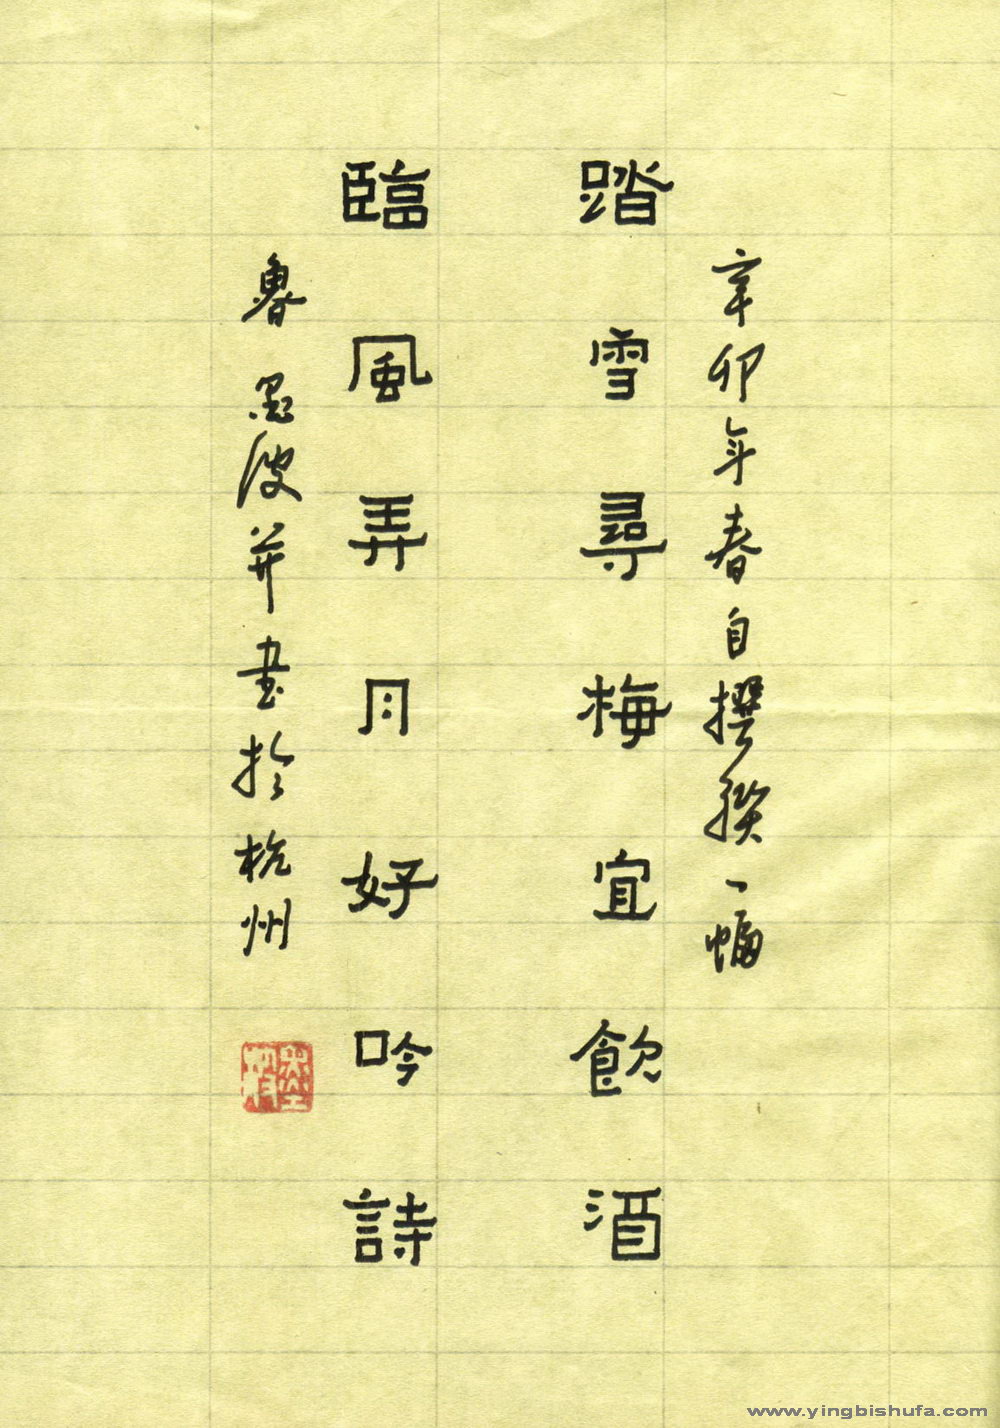 辛卯年春自撰聯一幅
踏雪尋梅宜飲酒
臨風弄月好吟詩
魯墨波并書於杭州
www.yingbishufa.com